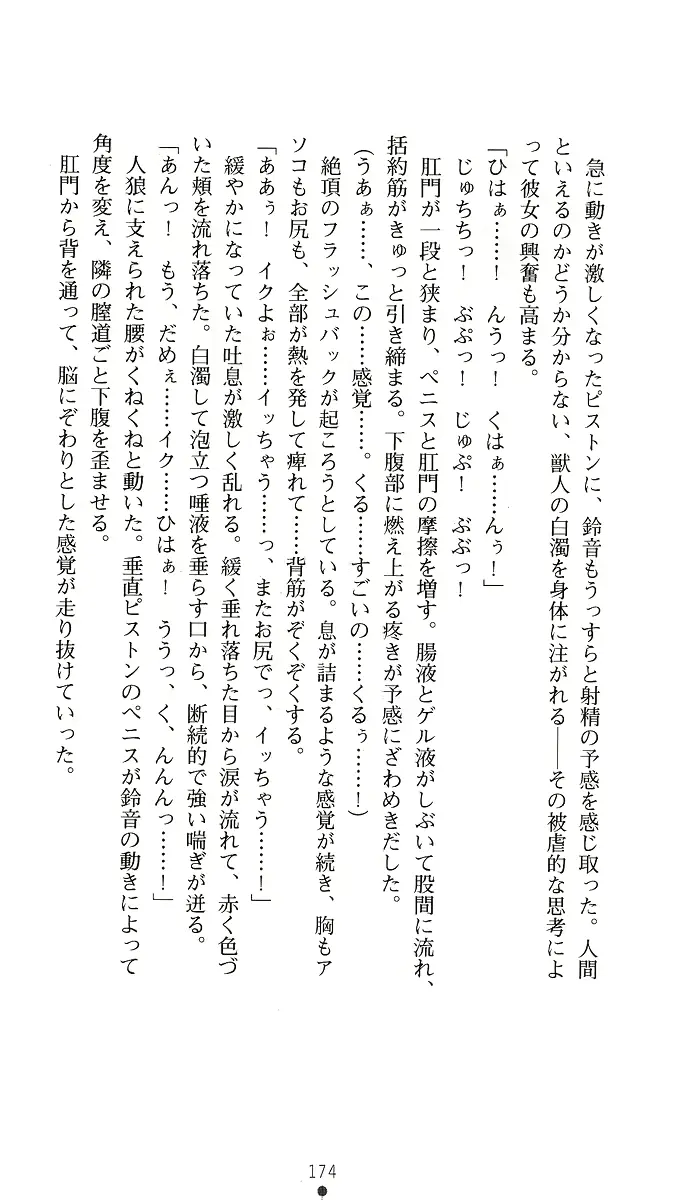 急に動きが激しくなったピストンに、鈴音もうっすらと射精の予感を感じ取った。人間
といえるのかどうか分からない、獣人の白濁を身体に注がれる――その被虐的な思考によ
って彼女の興奮も高まる。
「ひはぁ……！　んうっ！　くはぁ……んぅ！」
じゅちちっ！　ぶぷっ！　じゅぷ！　ぶぶっ！
肛門が一段と狭まり、ペニスと肛門の摩擦を増す。腸液とゲル液がしぶいて股間に流れ、
括約筋がきゅっと引き締まる。下腹部に燃え上がる疼きが予感にざわめきだした。
（うあぁ……、この……感覚……。くる……すごいの……くるぅ……！）
絶頂のフラッシュバックが起ころうとしている。息が詰まるような感覚が続き、胸もア
ソコもお尻も、全部が熱を発して痺れて……背筋がぞくぞくする。
「ああぅ！　イクよぉ……イッちゃう……っ、またお尻でっ、イッちゃう……！」
緩やかになっていた吐息が激しく乱れる。緩く垂れ落ちた目から涙が流れて、赤く色づ
いた頬を流れ落ちた。白濁して泡立つ唾液を垂らす口から、断続的で強い喘ぎが迸る。
「あんっ！　もう、だめぇ……イク……ひはぁ！　ううっ、く、んんんっ……！」
人狼に支えられた腰がくねくねと動いた。垂直ピストンのペニスが鈴音の動きによって
角度を変え、隣の膣道ごと下腹を歪ませる。
肛門から背を通って、脳にぞわりとした感覚が走り抜けていった。
174